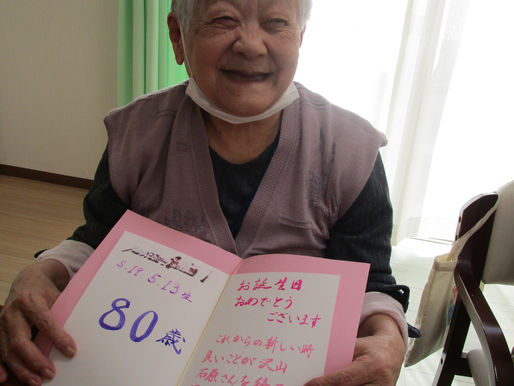 S.19.5.13生
80歳
お誕生日
おめでとう
ございます
これからの新しい時
良いことが沢山
石原さんを